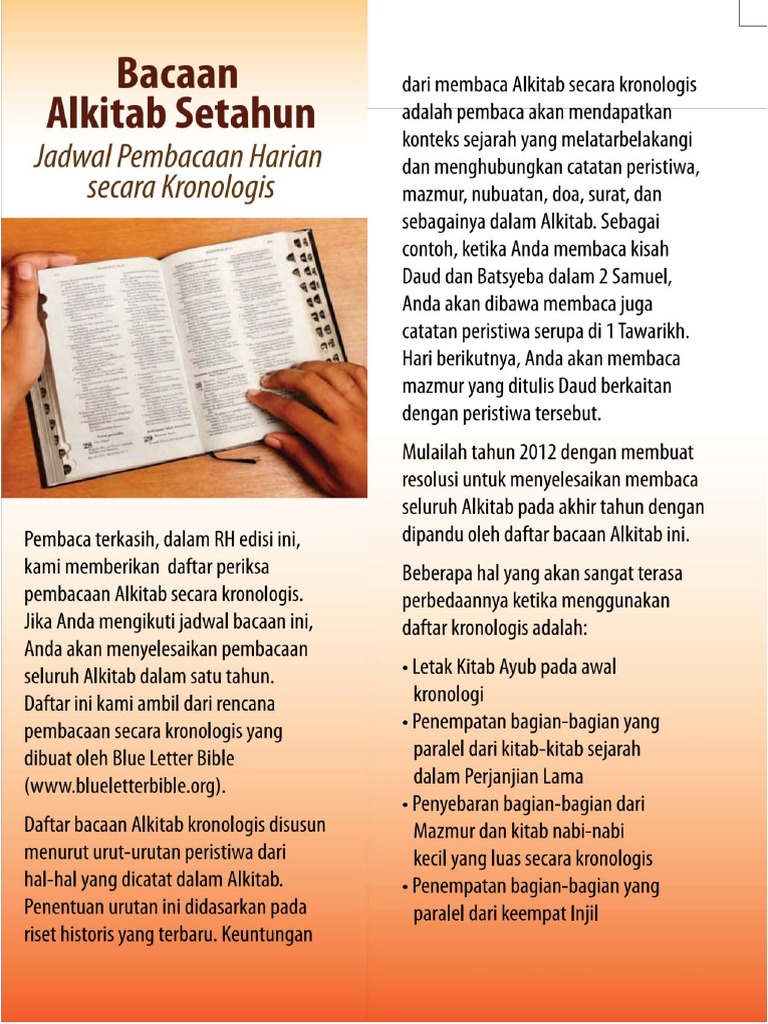 Bacaan
Alkitab Setahun
Jadwal Pembacaan Harian
secara Kronologis
Pembaca terkasih, dalam RH edisi ini,
kami memberikan daftar periksa
pembacaan Alkitab secara kronologis.
Jika Anda mengikuti jadwal bacaan ini,
Anda akan menyelesaikan pembacaan
seluruh Alkitab dalam satu tahun.
Daftar ini kami ambil dari rencana
pembacaan secara kronologis yang
dibuat oleh Blue Letter Bible
(www.blueletterbible.org).
Daftar bacaan Alkitab kronologis disusun
menurut urut-urutan peristiwa dari
hal-hal yang dicatat dalam Alkitab.
Penentuan urutan ini didasarkan pada
riset historis yang terbaru. Keuntungan
dari membaca Alkitab secara kronologis
adalah pembaca akan mendapatkan
konteks sejarah yang melatarbelakangi
dan menghubungkan catatan peristiwa,
mazmur, nubuatan, doa, surat, dan
sebagainya dalam Alkitab. Sebagai
contoh, ketika Anda membaca kisah
Daud dan Batsyeba dalam 2 Samuel,
Anda akan dibawa membaca juga
catatan peristiwa serupa di 1 Tawarikh.
Hari berikutnya, Anda akan membaca
mazmur yang ditulis Daud berkaitan
dengan peristiwa tersebut.
Mulailah tahun 2012 dengan membuat
resolusi untuk menyelesaikan membaca
seluruh Alkitab pada akhir tahun dengan
dipandu oleh daftar bacaan Alkitab ini.
Beberapa hal yang akan sangat terasa
perbedaannya ketika menggunakan
daftar kronologis adalah:
• Letak Kitab Ayub pada awal
kronologi
• Penempatan bagian-bagian yang
paralel dari kitab-kitab sejarah
dalam Perjanjian Lama
• Penyebaran bagian-bagian dari
Mazmur dan kitab nabi-nabi
kecil yang luas secara kronologis
• Penempatan bagian-bagian yang
paralel dari keempat Injil
28
29